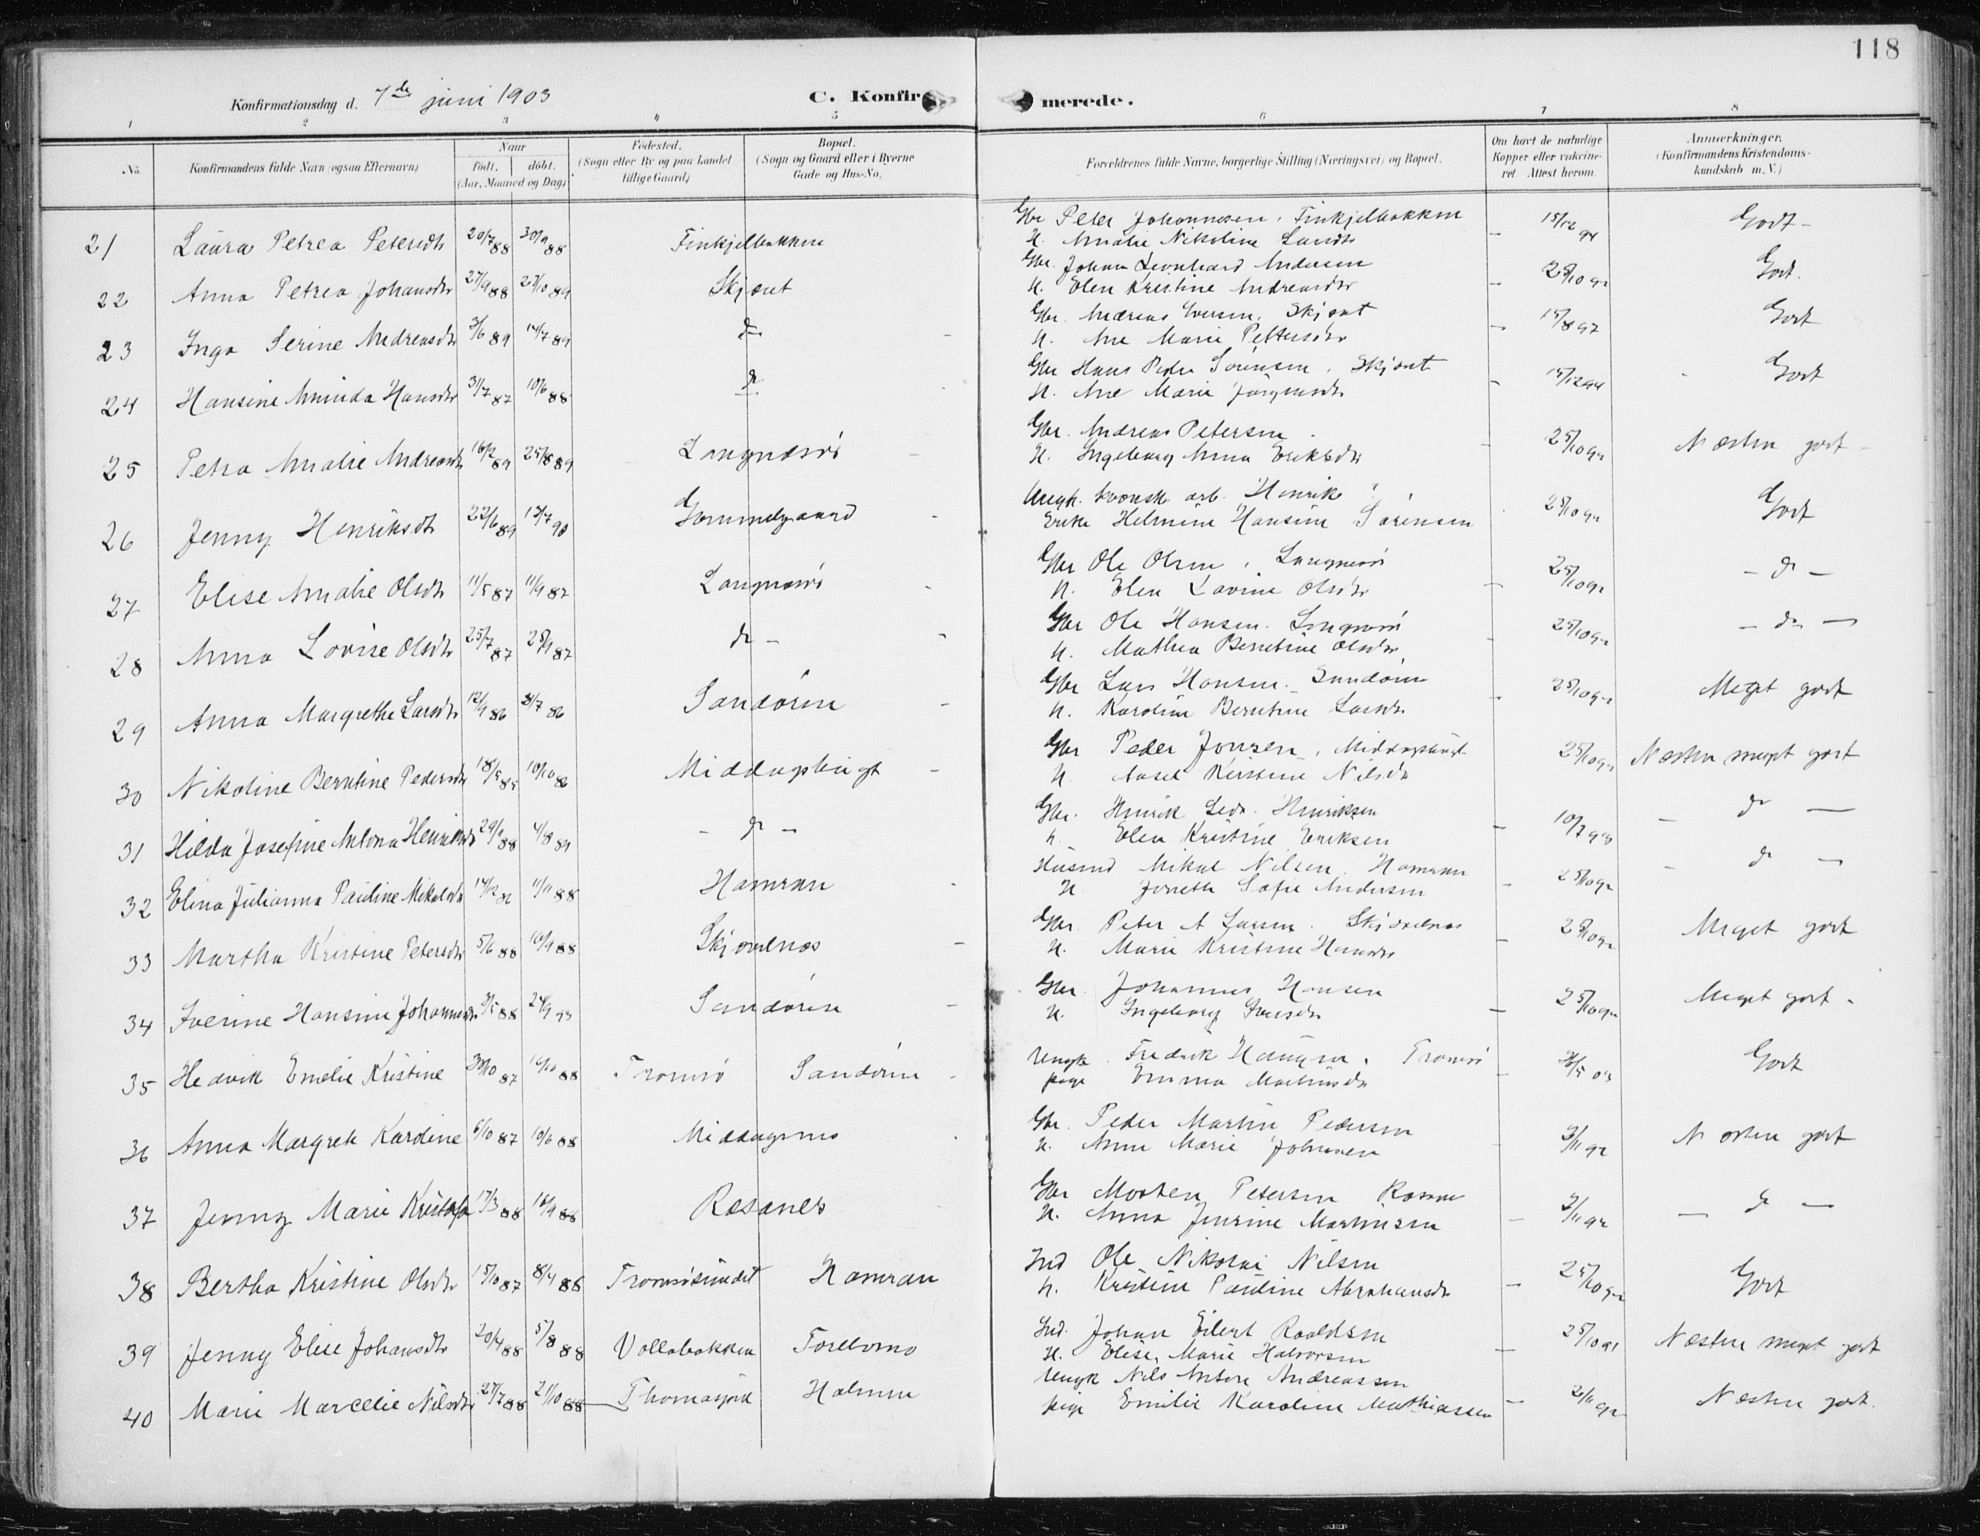 118
Konfirmationsdag d. 7de juni 1903 C. Konfirmerede.
1 2 3 4 5 6 7 8
No. Konfirmandens fulde Navn (ogsaa Efternavn) Naar født. døbt. (Aar, Maaned og Dag) Fødested. (Sogn eller By og paa Landet tillige Gaard) Bopæl. (Sogn og Gaard eller i Byerne Gade og Hus-No. Forældrenes fulde Navne, borgerlige Stilling (Næringsvei) og Bopæl. Om havt de naturlige Kopper eller vaccineret Attest herom. Anmærkninger. (Konfirmandens Kristendomskundskab m. V.)
21 Laura Petrea Petersdtr 20/7 88 30/9 88 Finkjelbakken Gbr Peter Johannesen. Finkjelbakken 15/12 94 Godt
H. Amalie Nikoline Larsdtr
22 Anna Petrea Johansdtr 27/9 88 27/10 89 Skjaat Gbr. Johan Leonhard Andersen 25/10 92 Godt.
H. Elen Kristine Andreasdtr
23 Inga Serine Andreasdtr 3/6 89 14/7 89 do Gbr. Andreas Iversen. Skjaat 15/8 97 Godt
H. Ane Marie Pettersdtr
24 Hansine Aminda Hansdtr 31/7 87 10/6 88 do Gbr Hans Peder Sørensen. Skjaat 15/12 94 Godt
H. Ane Marie Jørgensdtr
25 Petra Amalie Andreasdtr 16/2 89 25/8 89 Langnæsør Gbr. Andreas Petersen 25/10 92 Næsten godt
H. Ingeborg Anna Eriksdtr
26 Jenny Henriksdtr 22/6 89 13/7 90 Gammelgaard Ungk. kvænsk arb. Henrik ? 25/10 92 Godt
Enke Helmine Hansine Sørensen
27 Elise Amalie Olsdtr 11/5 87 11/9 87 Langnæsør Gbr Ole Olsen, Langnæsør 25/10 92 - do -
H. Elen Lovine Olsdtr
28 Anna Lovise Olsdtr 25/7 87 87 do - Gbr Ole Hansen. Langnæsør 25/10 92 - do -
H. Mathea Berntine Olsdtr
29 Anna Margrethe Larsdtr 86 86 Sandøren Gbr Lars Hansen. Sandøren 25/10 92 Meget godt
H. Karoline Berntine Larsdtr
30 Nikoline Berntine Pedersdtr 18/5 85 10/10 86 Middagsbugt Gbr Peder Jonsen, Middagsbugt 25/10 92 Næsten meget godt
H. Kirstine Nilsdtr
31 Hilda Josefine Antona Henriksdtr 29/9 88 4/8 89 - do - Gbr. Henrik Henriksen 10/7 - do -
H. Elen Kristine Eriksen
32 Elina Julianna Pauline Mikalsdtr 14/12 11/11 88 Hamran Husmd Mikal Nilsen. Hamran 25/10 92 - do -
H Jonetta Sofie Andersen
33 Martha Kristine Petersdtr 5/6 88 16/9 88 Skjælnæs Gbr. Peter A Larsen. Skjælnæs 25/10 92 Meget godt
H. Marie Kristine Hansdtr
34 Iverine Hansine Johannesdtr 3/5 88 24/9 Sandøren Gbr. Johannes Hansen 25/10 92 Meget godt.
H. Ingeborg
35 Hedvik Emelie Kristine 30/10 87 88 Tromsø Sandøren Ungk. Fredrik Tromsø 03 Godt
pige Emma
36 Anna Margreth Kardine 6/10 87 10/6 88 Middagsnes Gbr. Peder Martin Pedersen 2/11 92 Næsten godt
H. Anne Marie Johnsen
37 Jenny Marie 17/3 88 16/9 88 Røsanes Gbr Morten Petersen 2/11 92 - do -
H. Anna Jensine Martinsen
38 Bertha Kristine Olsdtr 15/10 87 8/4 88 Tromsøsundet Hamran Ind Ole Nikolai Nilsen 25/10 92 Godt
H. Kristine Pauline Abrahamsdtr
39 Jenny Elise Johansdtr 20/4 88 5/8 88 Vollabakken Ind. Johan Eilert Roaldsen 25/10 91 Næsten meget godt
H. Elise Marie Halvorsen
40 Marie Marcelie Nilsdtr 27/7 88 21/10 88 Thomasjord Holmen Ungk Nils Anton Andreassen 2/11 92 Næsten godt.
pige Emilie Karoline Mathiassen